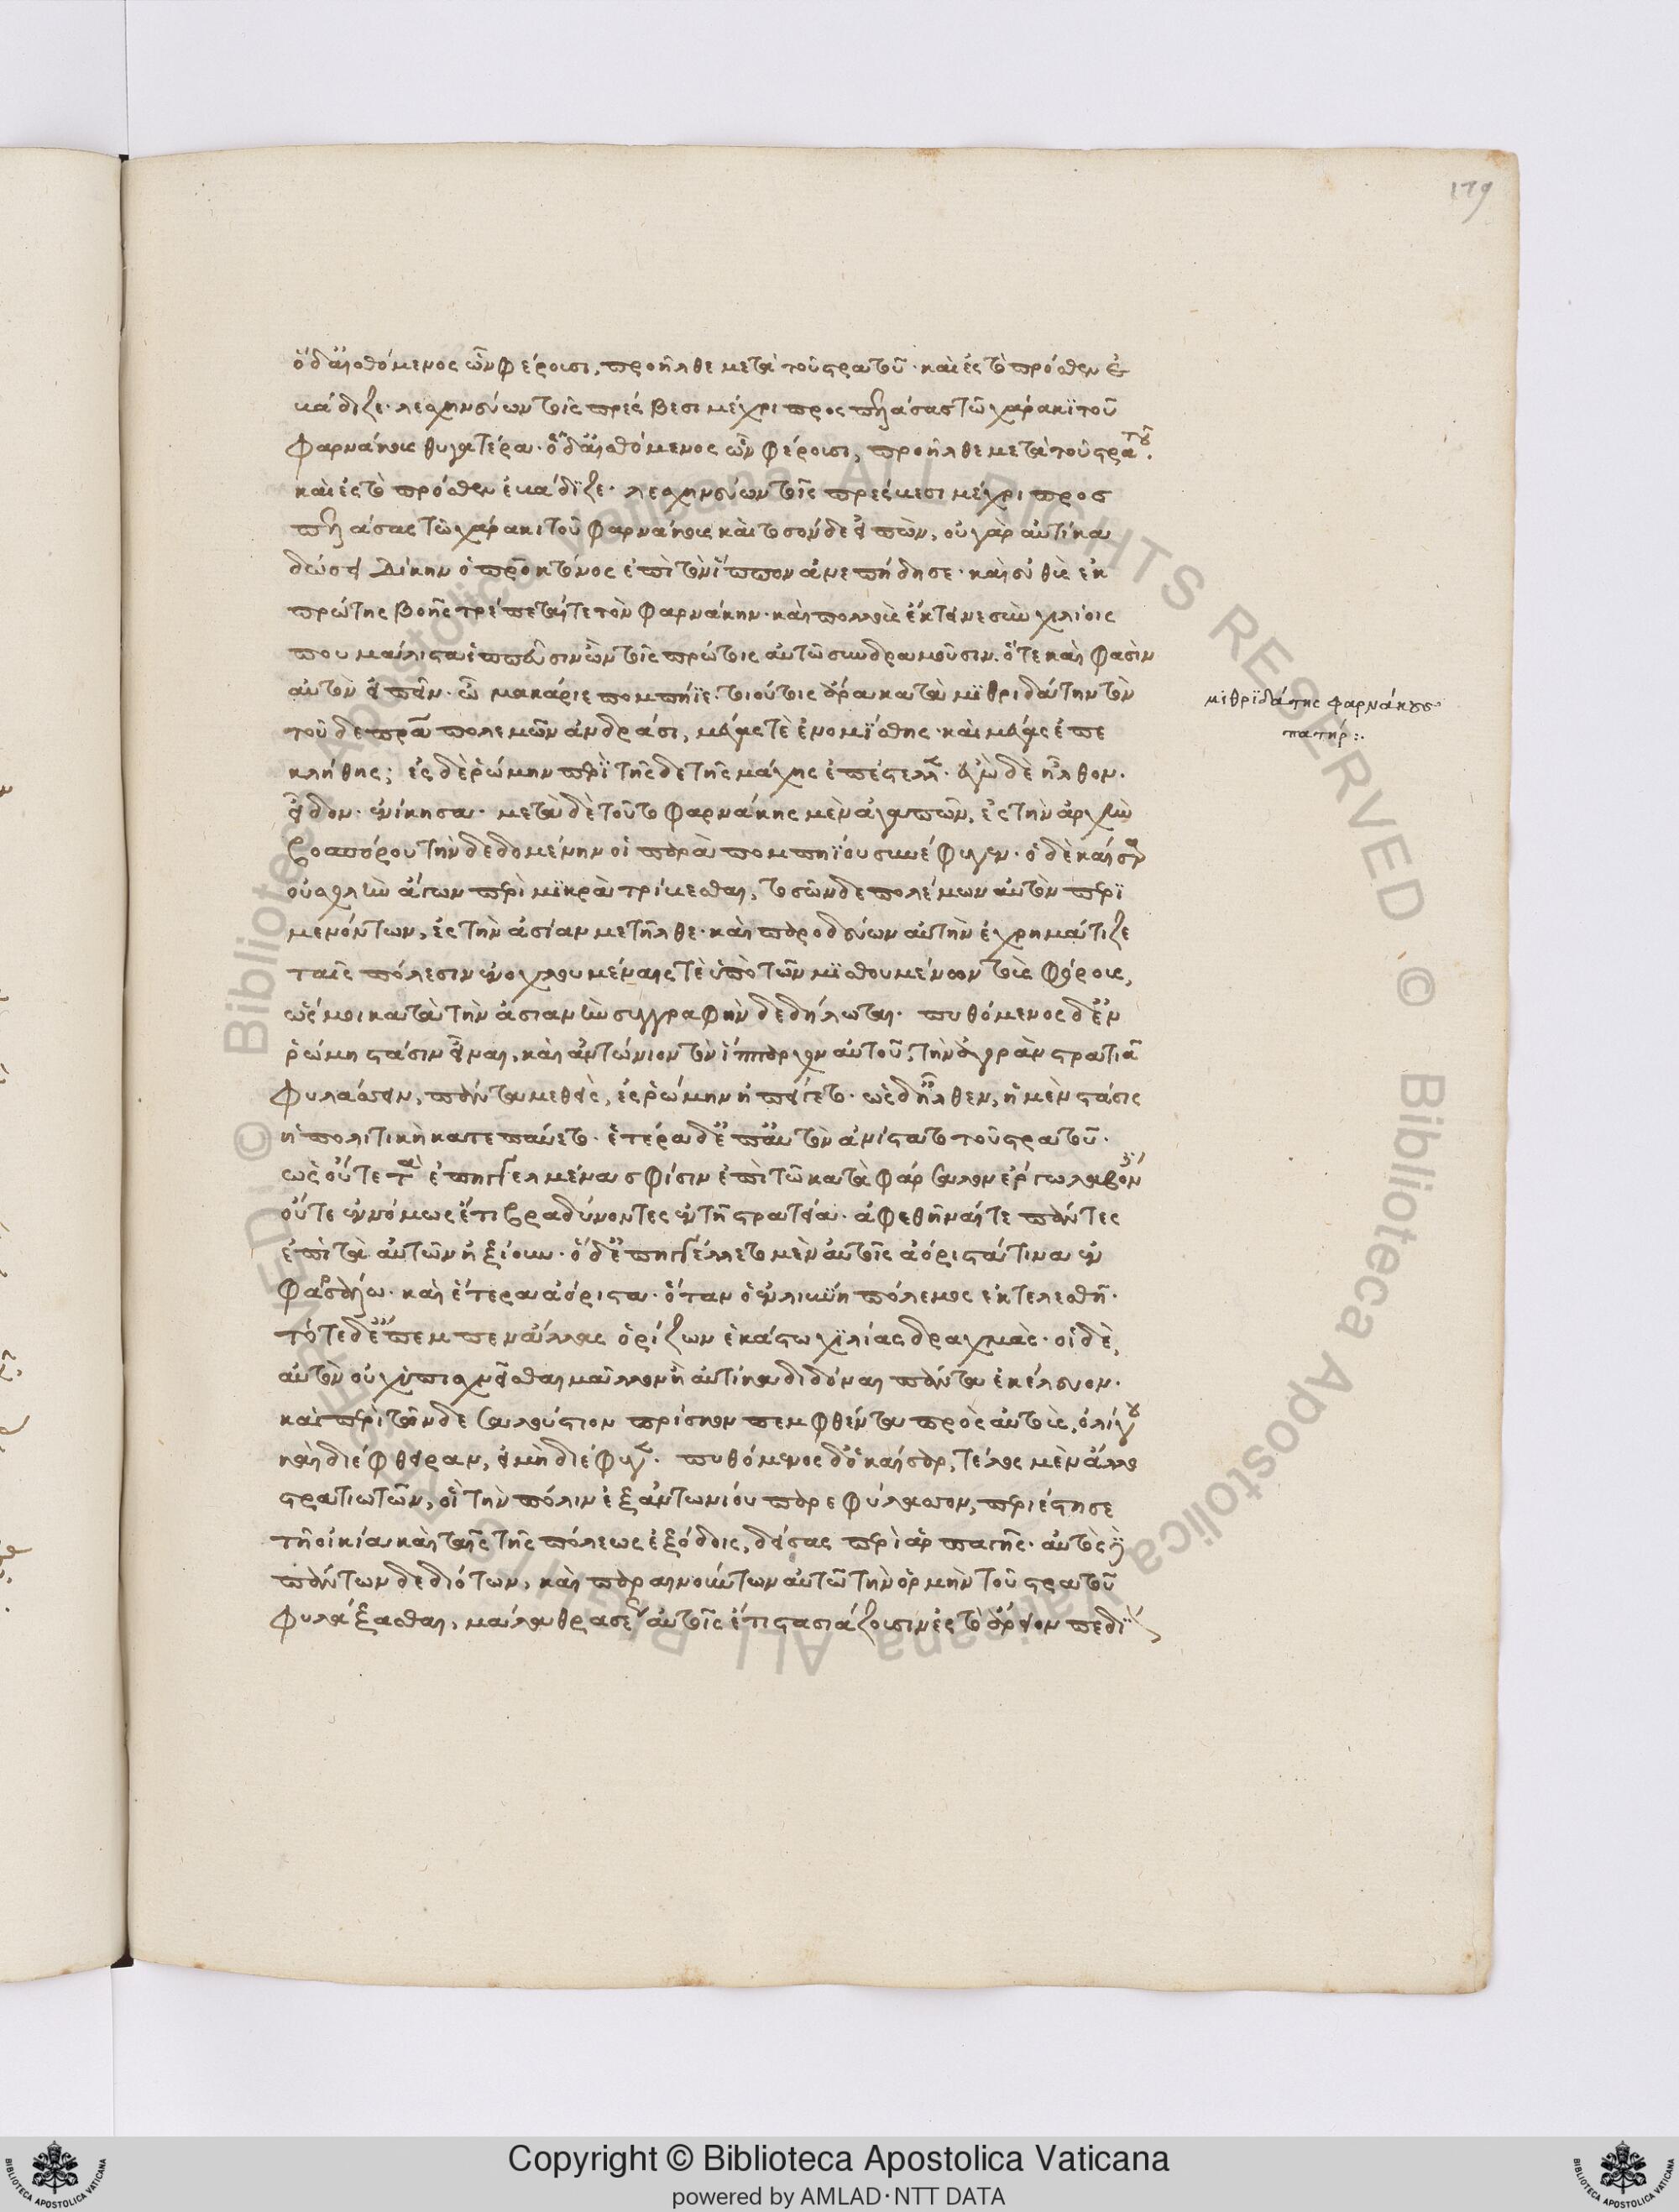 179
ὁ δ' αἰσθόμενος ὧν φέρουσι, προῆλθε μετὰ τοῦ στρατοῦ· καὶ ἐς τὸ πρόσθεν ἐ
κάθιζε λεσχηνεύων τοῖς πρέσβεσι μέχρι προσπελάσας τῷ χάρακι τοῦ
φαρνάκους θυγατέρα· ὁ δ' αἰσθόμενος ὧν φέρουσι, προῆλθε μετὰ τοῦ στρατοῦ·
καὶ ἐς τὸ πρόσθεν ἐκάθιζε· λεσχηνεύων τοῖς πρέσβεσι μέχρι προσ
πελάσας τῷ χάρακι τοῦ φαρνάκους καὶ τοσόνδε εἰπὼν, οὐ γὰρ αὐτίκα
δώσει δίκην ὁ πατροκτόνος ἐπὶ τὸν ἵππον ἀνεπήδησε· καὶ εὐθὺς ἐκ
πρώτης βοῆς τρέπεταί τε τὸν φαρνάκην· καὶ πολλοὺς ἔκτεινε σὺν χιλίοις
που μάλιστα ἱππεῦσιν ὧν τοῖς πρώτοις αὐτῷ συνδραμοῦσιν. ὅτε καὶ φασὶν
αὐτὸν εἰπεῖν· ὦ μακάριε πομπήϊε· τοιούτοις ἄρα κατὰ μιθριδάτην τὸν
τοῦδε πατέρα πολεμῶν ἀνδράσι, μέγας τὲ ἐνομίσθης· καὶ μέγας ἐπε
κλήθης; ἐς δὲ ῥώμην περὶ τῆσδε τῆς μάχης ἐπέστειλεν· ἐγὼ δὲ ἦλθον·
εἶδον· ἐνίκησα· μετὰ δὲ τοῦτο φαρνάκης μὲν ἀγαπῶν, ἐς τὴν ἀρχὴν
βοσπόρου τὴν δεδομένην οἱ παρὰ πομπηΐου συνέφυγεν· ὁ δὲ καῖσαρ
οὐ σχολὴν ἄγων περὶ μικρὰ τρίβεσθαι, τοσῶνδε πολέμων αὐτὸν περι
μενόντων, ἐς τὴν ἀσίαν μετῆλθε· καὶ παροδεύων αὐτὴν ἐχρημάτιζε
ταῖς πόλεσιν ἐνοχλουμέναις τὲ ὑπὸ τῶν μισθουμένων τοὺς φόρους,
ὥς μοι κατὰ τὴν ἀσιανὴν συγγραφὴν δεδήλωται· πυθόμενος δ' ἐν
ῥώμῃ στάσιν εἶναι, καὶ ἀντώνιον τὸν ἵππαρχον αὐτοῦ, τὴν ἀγορὰν στρατιᾷ
φυλάσσειν, πάντα μεθεὶς, ἐς ῥώμην ἠπείγετο· ὡς δ' ἦλθεν, ἡ μὲν στάσις
ἡ πολιτικὴ κατεπαύετο· ἑτέρα δ' ἐπ' αὐτὸν ἀνίστατο τοῦ στρατοῦ·
ὡς οὔτε τὰ ἐπηγγελμένα σφίσιν ἐπὶ τῷ κατὰ φάρσαλον ἔργῳ λαβόντες
οὔτε ἐννόμως ἔτι βραδύνοντες ἐν τῇ στρατείᾳ· ἀφεθῆναί τε πάντες
ἐπὶ τὰ αὐτῶν ἠξίουν· ὁ δ' ἐπηγγέλλετο μὲν αὐτοῖς ἀόριστά τινα ἐν
φαρσάλῳ· καὶ ἕτερα ἀόριστα· ὅταν ὁ ἐν λιβύῃ πόλεμος ἐκτελεσθῇ·
τότε δ' ἔπεμπεν ἄλλας ὁρίζων ἑκάστῳ χιλίας δραχμὰς· οἱ δὲ,
αὐτὸν οὐχ ὑπισχνεῖσθαι μᾶλλον ἢ αὐτίκα διδόναι πάντα ἐκέλευον·
καὶ περὶ τῶνδε σαλούστιον πρίσκον πεμφθέντα πρὸς αὐτοὺς, ὀλίγου
καὶ διέφθειραν, εἰ μὴ διέφυγεν. πυθόμενος δ' ὁ καῖσαρ, τέλος μὲν ἄλλο
στρατιωτῶν, οἳ τὴν πόλιν ἐξ ἀντωνίου παρεφύλασσον, περιέστησε
τῇ οἰκίᾳ καὶ ταῖς τῆς πόλεως ἐξόδοις, δείσας περὶ ἁρπαγῆς· αὐτὸς δὲ
πάντων δεδιότων, καὶ παραινούντων αὐτῷ τὴν ὁρμὴν τοῦ στρατοῦ
φυλάξασθαι, μάλα θρασέως αὐτοῖς ἔτι στασιάζουσιν ἐς τὸ ἄρειον πεδίον
μιθριδάτης φαρνάκους
πατήρ:.